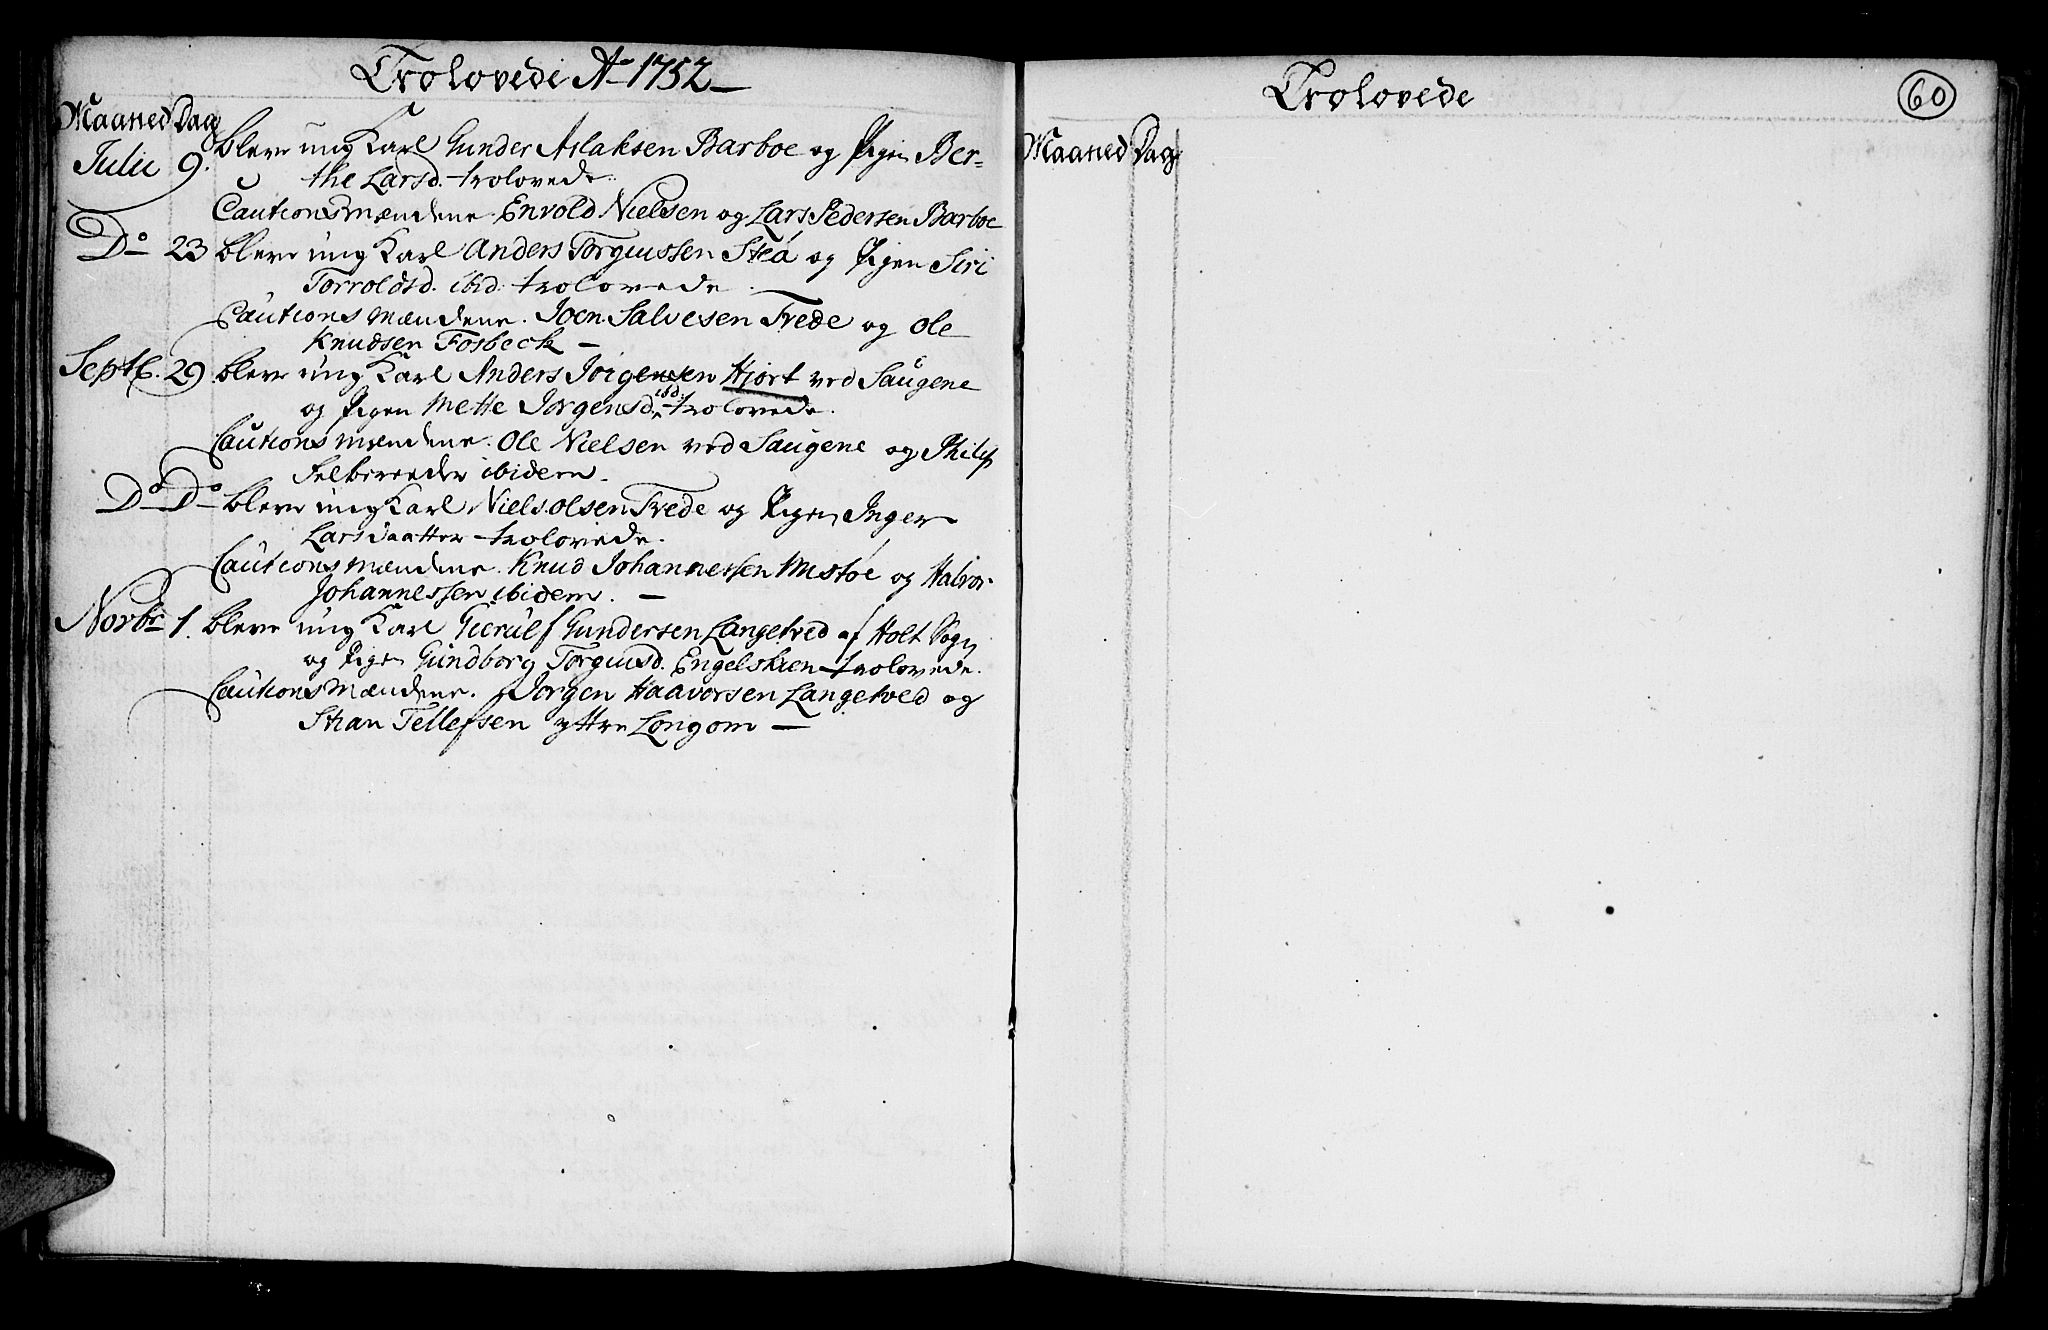 Trolovede Ao 1752
Maaned Dag
Julii 9. bleve ung Karl Gunder Aslaksen Barboe og Pigen Ber=
the Larsd. trolovede.
Cautionsmændene Envold Nielsen og Lars Pedersen Barboe
Do 23 bleve ung Karl Anders Torgiussen Steá og Pigen Siri
Torroldsd. ibid: trolovede.
Cautionsmændene. Joen Salvesen Trede og Ole
Knudsen Fosbeck —
Septb. 29. bleve ung Karl Anders Jörgensen Hjort ved Saugene
og Pigen Mette Jörgensd. ibd: trolovede.
Cautionsmændene. Ole Nielsen ved Saugene og Philip
Felbereeder ibidem.
Do Do bleve ung Karl Niels Olsen Trede og Pigen Inger
Larsdaatter trolovede.
Cautionsmændene. Knud Johannessen Mostöe og Halvor
Johannessen ibidem. —
Novbr 1. bleve ung Karl Gierulf Gundersen Langetved af Holt Sogn
og Pigen Gundborg Torgiusd. Engelskien trolovede.
Cautionsmændene. Jörgen Haavorsen Langetved og
Stian Tellefsen yttre Longom —
Trolovede
60
Maaned Dag